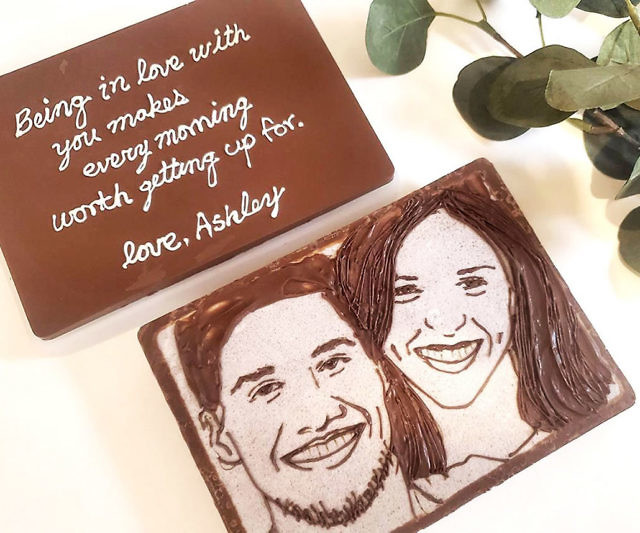 Being in love with
you makes
every morning
worth getting up for.
love, Ashley